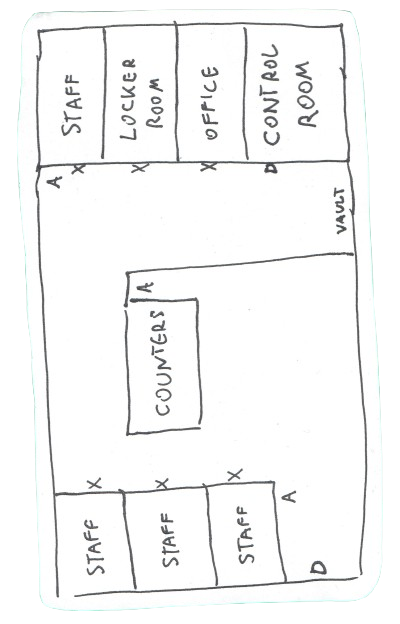 STAFF
LOCKER
ROOM
OFFICE
CONTROL
ROOM
A
X
X
X
D
VAULT
A
COUNTERS
X
X
X
A
STAFF
STAFF
STAFF
D